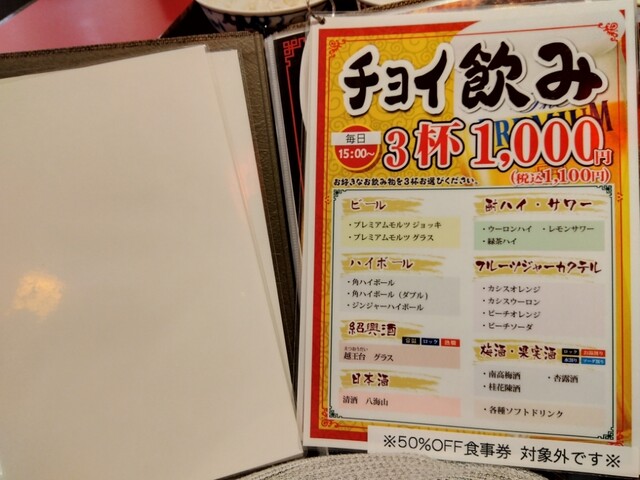 チョイ飲み
PREMIUM
毎日
15:00～
3杯 1,000円
(税込1,100円)
お好きなお飲み物を3杯お選びください。
ビール
・プレミアムモルツ ジョッキ
・プレミアムモルツ グラス
ハイボール
・角ハイボール
・角ハイボール（ダブル）
・ジンジャーハイボール
紹興酒
常温 ロック 熱燗
越王台 グラス
日本酒
清酒 八海山
酎ハイ・サワー
・ウーロンハイ ・レモンサワー
・緑茶ハイ
フルーツジャーカクテル
・カシスオレンジ
・カシスウーロン
・ピーチオレンジ
・ピーチソーダ
梅酒・果実酒
ロック お湯割り
水割り ソーダ割り
・南高梅酒 ・杏露酒
・桂花陳酒
・各種ソフトドリンク
※50%OFF食事券 対象外です※